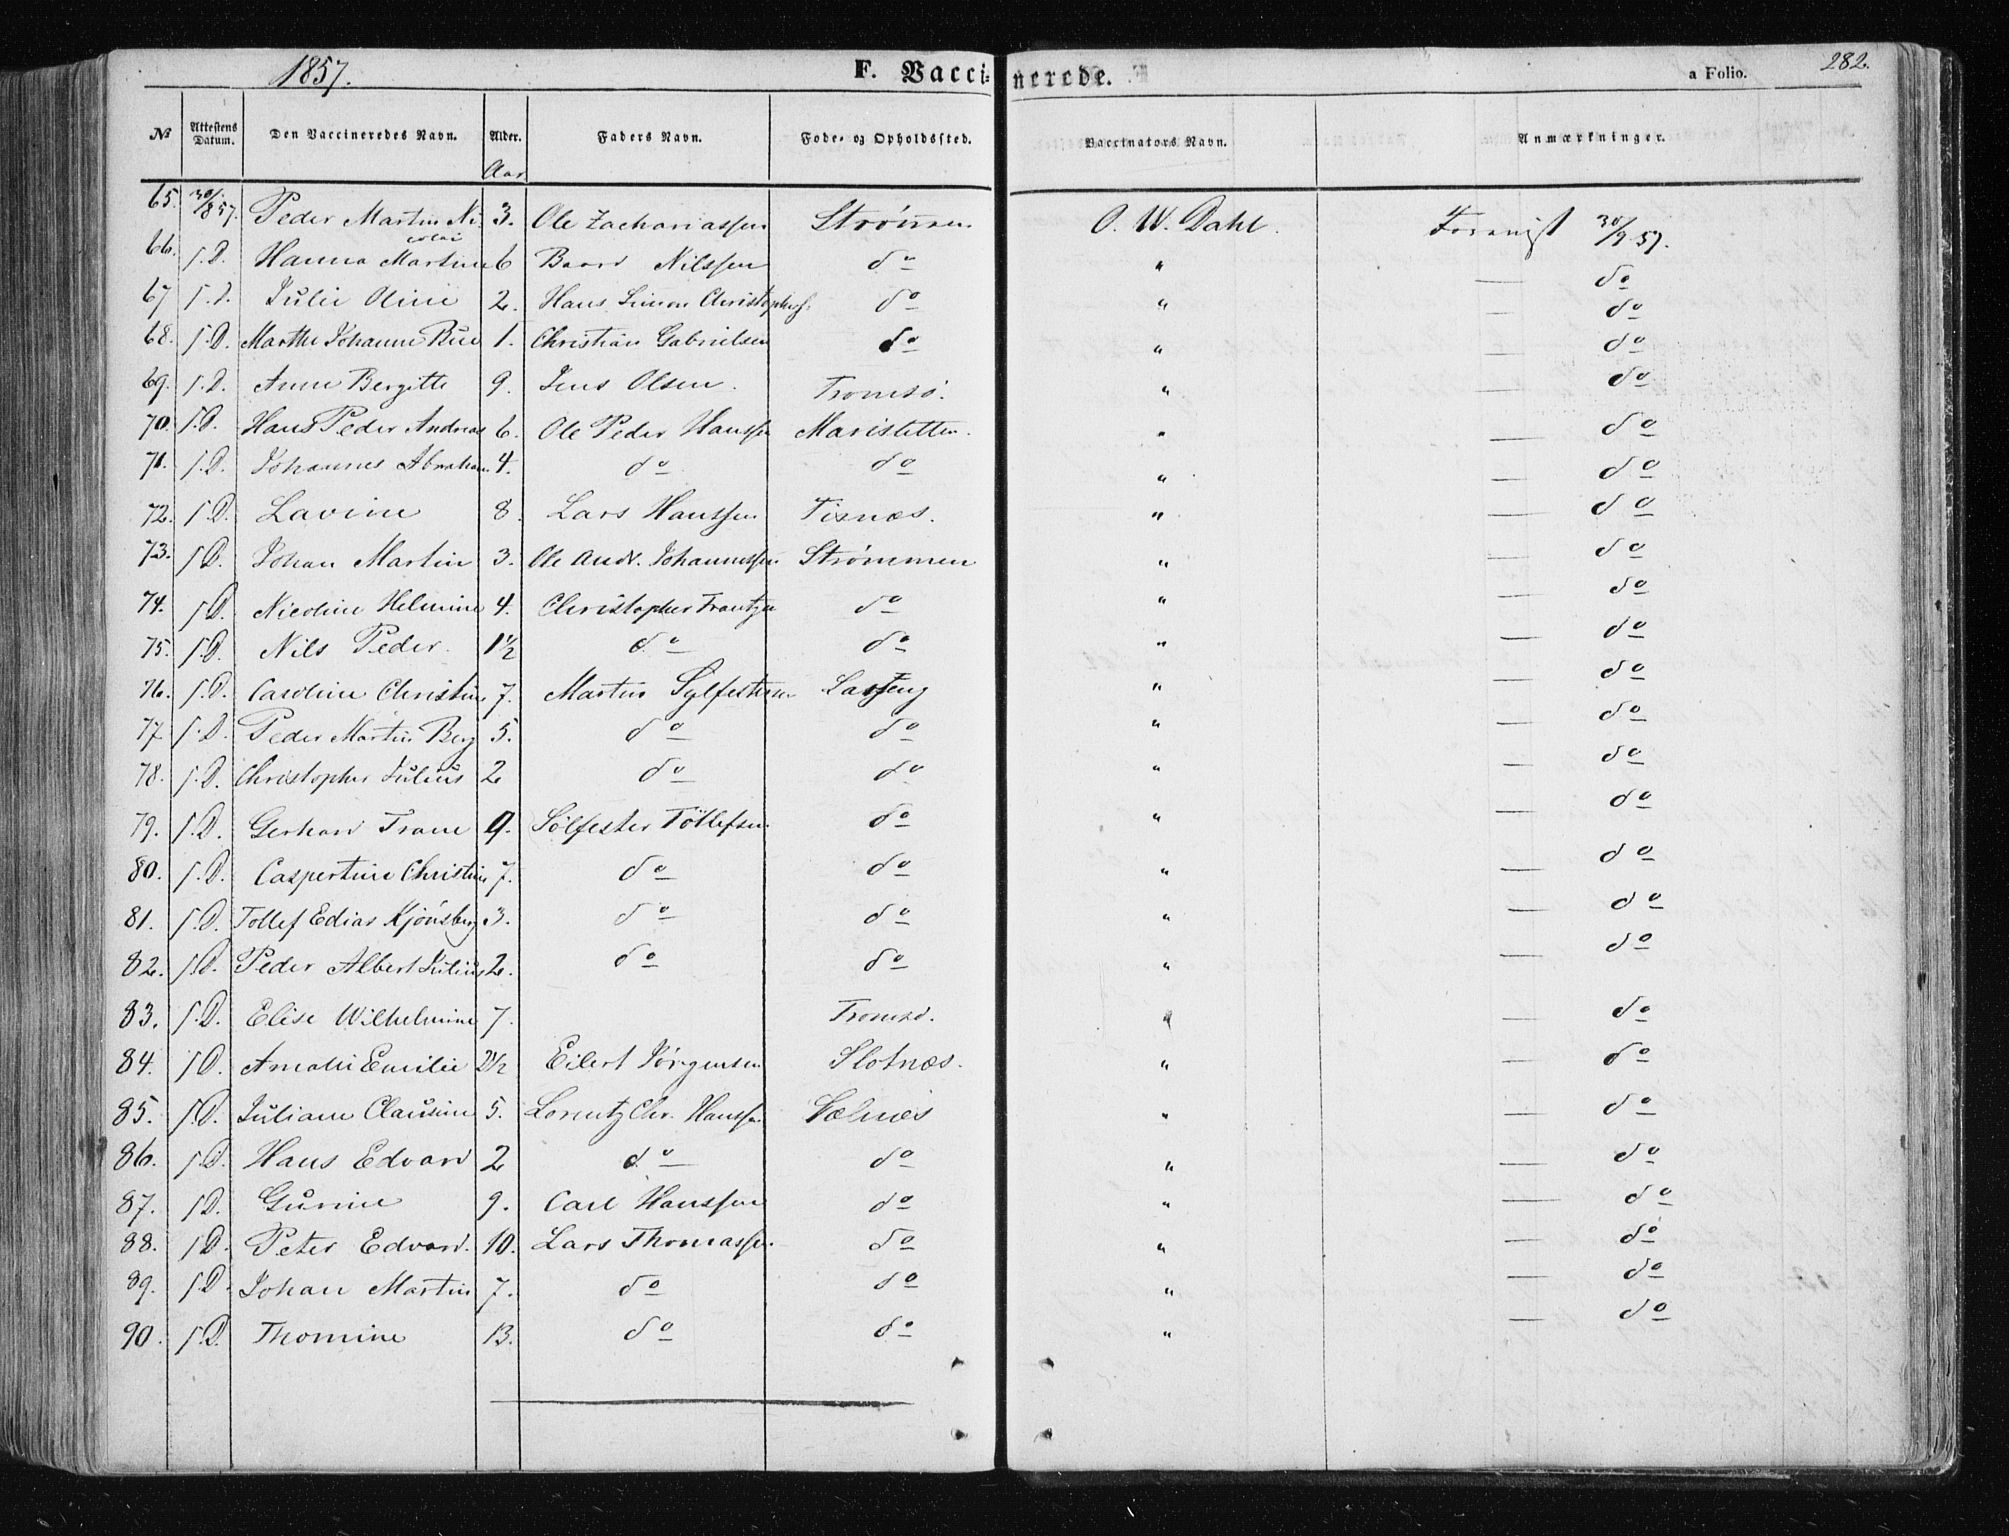 1857. F. Vaccinerede. a Folio. 282.
№ Attestens Datum. Den Vaccineredes Navn. Alder. Faders Navn. Føde- og Opholdssted. Vaccinators Navn. Anmærkninger.
Aar
65. 30/8 57. Peder Martin Ni- 3. Ole Zachariassen Strømmen O. W. Dahl. Forevist 30/9 57.
colai
66. s.D. Hanna Martine 6 Baard Nilssen do " — do
67 s.D. Julie Oline 2. Hans Simon Christophers. do " — do
68. s.D. Marthe Johanne 1. Christian Gabrielsen do " — do
69. s.D. Anne Bergitte 9. Jens Olsen. Tromsö. " — do
70. s.D. Hans Peder Andreas 6. Ole Peder Hanssen " — do
71. s.D. Johannes Abraham 4. do do " — do
72. s.D. Lavine 8. Lars Hanssen Tisnæs. " — do
73. s.D. Johan Martin 3. Ole Andr. Johannessen Strømmen " — do
74. s.D. Nicoline Helmine 4. Christopher Frantzen do " — do
75. s.D. Nils Peder. 1½ do do " — do
76. s.D. Caroline Christine 7. Martin Sylfestersen " — do
77. s.D. Peder Martin Berg 5. do do " — do
78. s.D. Christopher Julius 2 do do " — do
79. s.D. Gerhard Trane 9. Sölfester Töllefsen do " — do
80. s.D. Caspertine Christine 7. do do " — do
81. s.D. Tollef Edias Kjönsberg 3. do do " — do
82. s.D. Peder Albert Julius 2. do do " — do
83. s.D. Elise Wilhelmine 7. Tromsö. " do
84. s.D. Amalie Emilie 2½ Eilert Jörgensen Slotnæs. " — do
85. s.D. Juliane Clausine 5. Lorentz Chr. Hanssen Sælnæs " — do
86. s.D. Hans Edvard 2 do do " — do
87. s.D. Gurine 9. Carl Hanssen do " — do
88. s.D. Peter Edvard. 10. Lars Thomassen do " — do
89. s.D. Johan Martin 7. do do " — do
90. s.D. Thomine 13. do do " — do